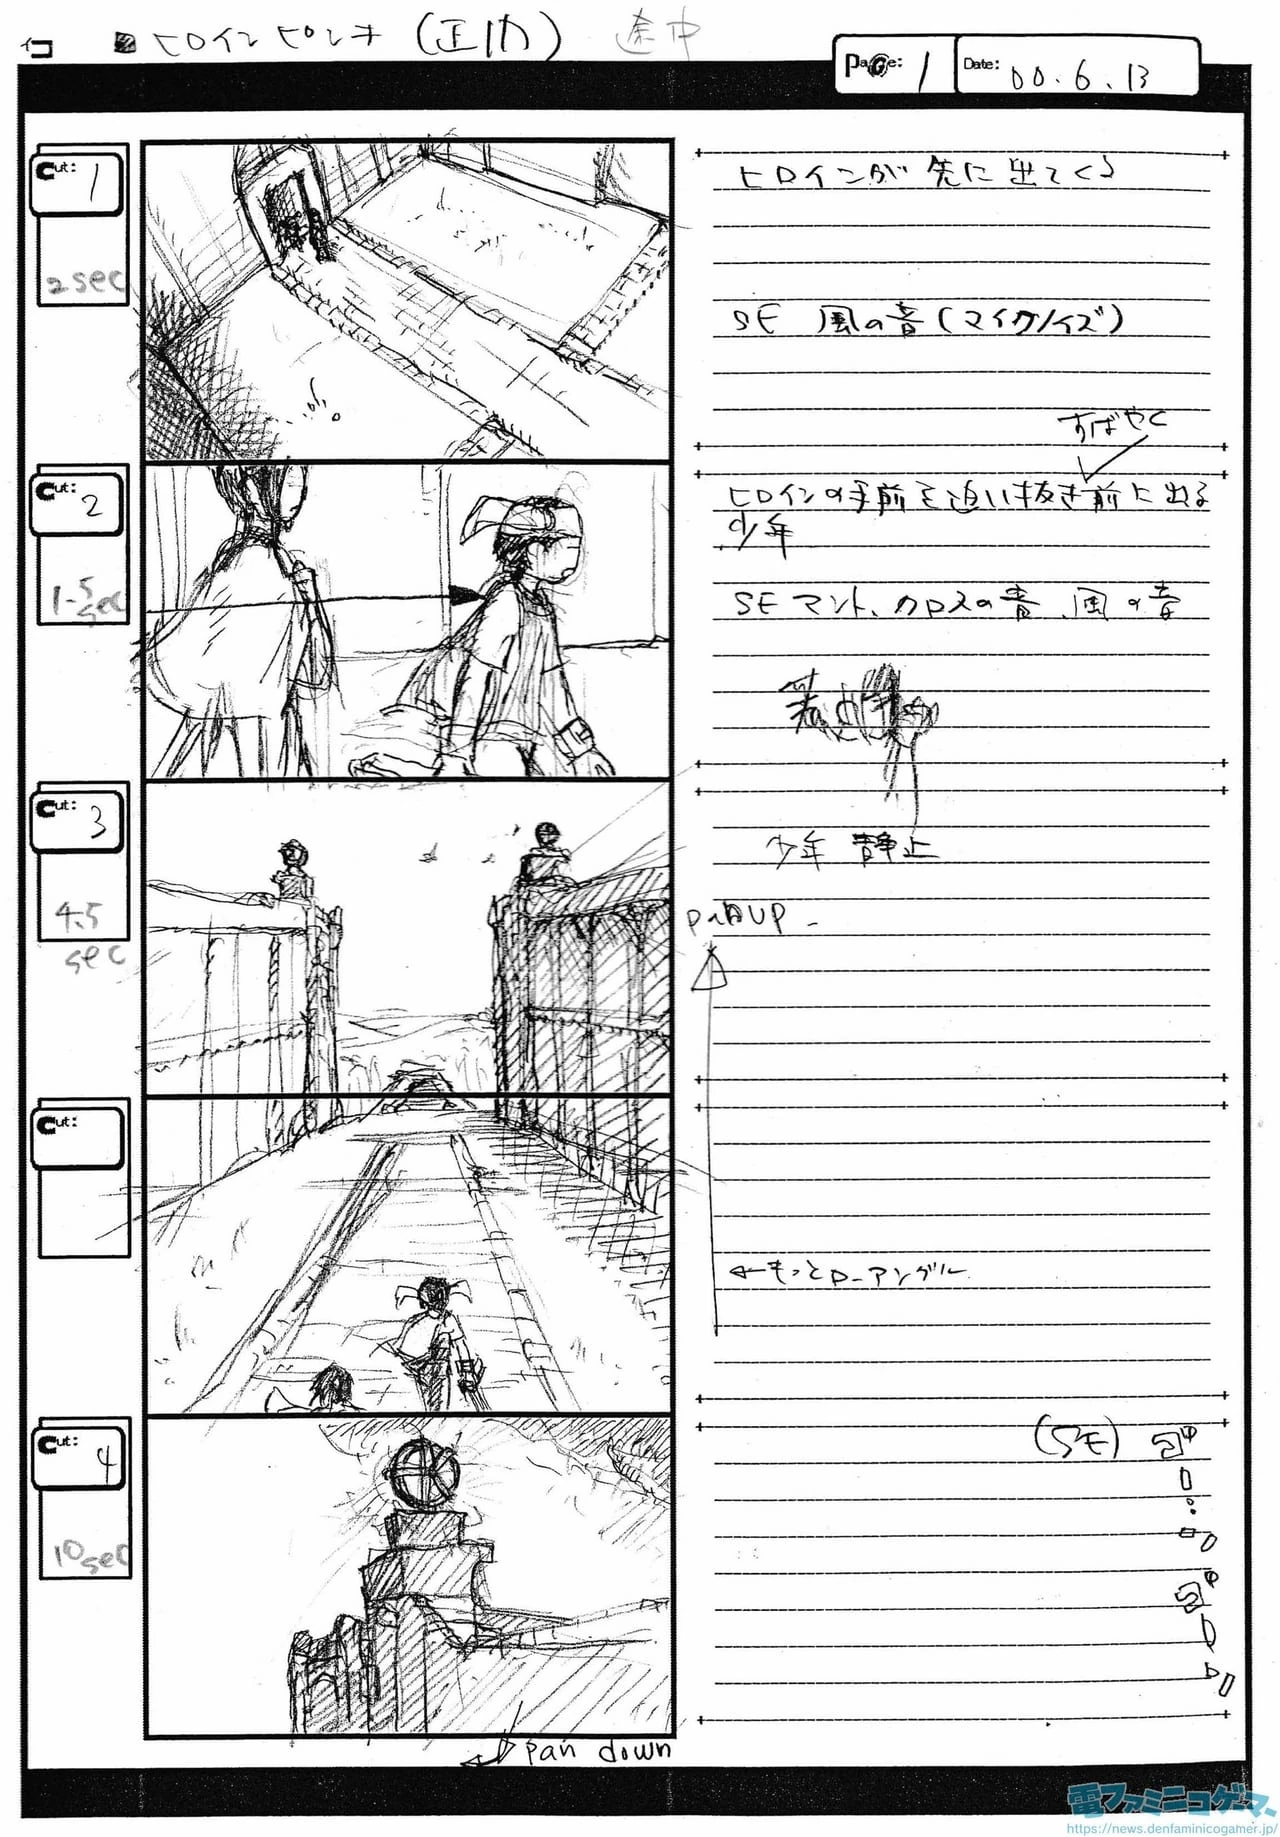 ヒロインピンチ (正門) 途中
Page: 1
Date: 00.6.13
Cut: 1
2sec
ヒロインが先に出てくる
SE 風の音(マイクノイズ)
Cut: 2
1.5 sec
すばやく
ヒロインの手前を追い抜き前に出る
少年
SE マント、カロスの音、風の音
Cut: 3
4.5 sec
少年 静止
pan UP
←もっとローアングル
Cut:
Cut: 4
10sec
(SE)
pan down
電ファミニコゲーマー
https://news.denfaminicogamer.jp/